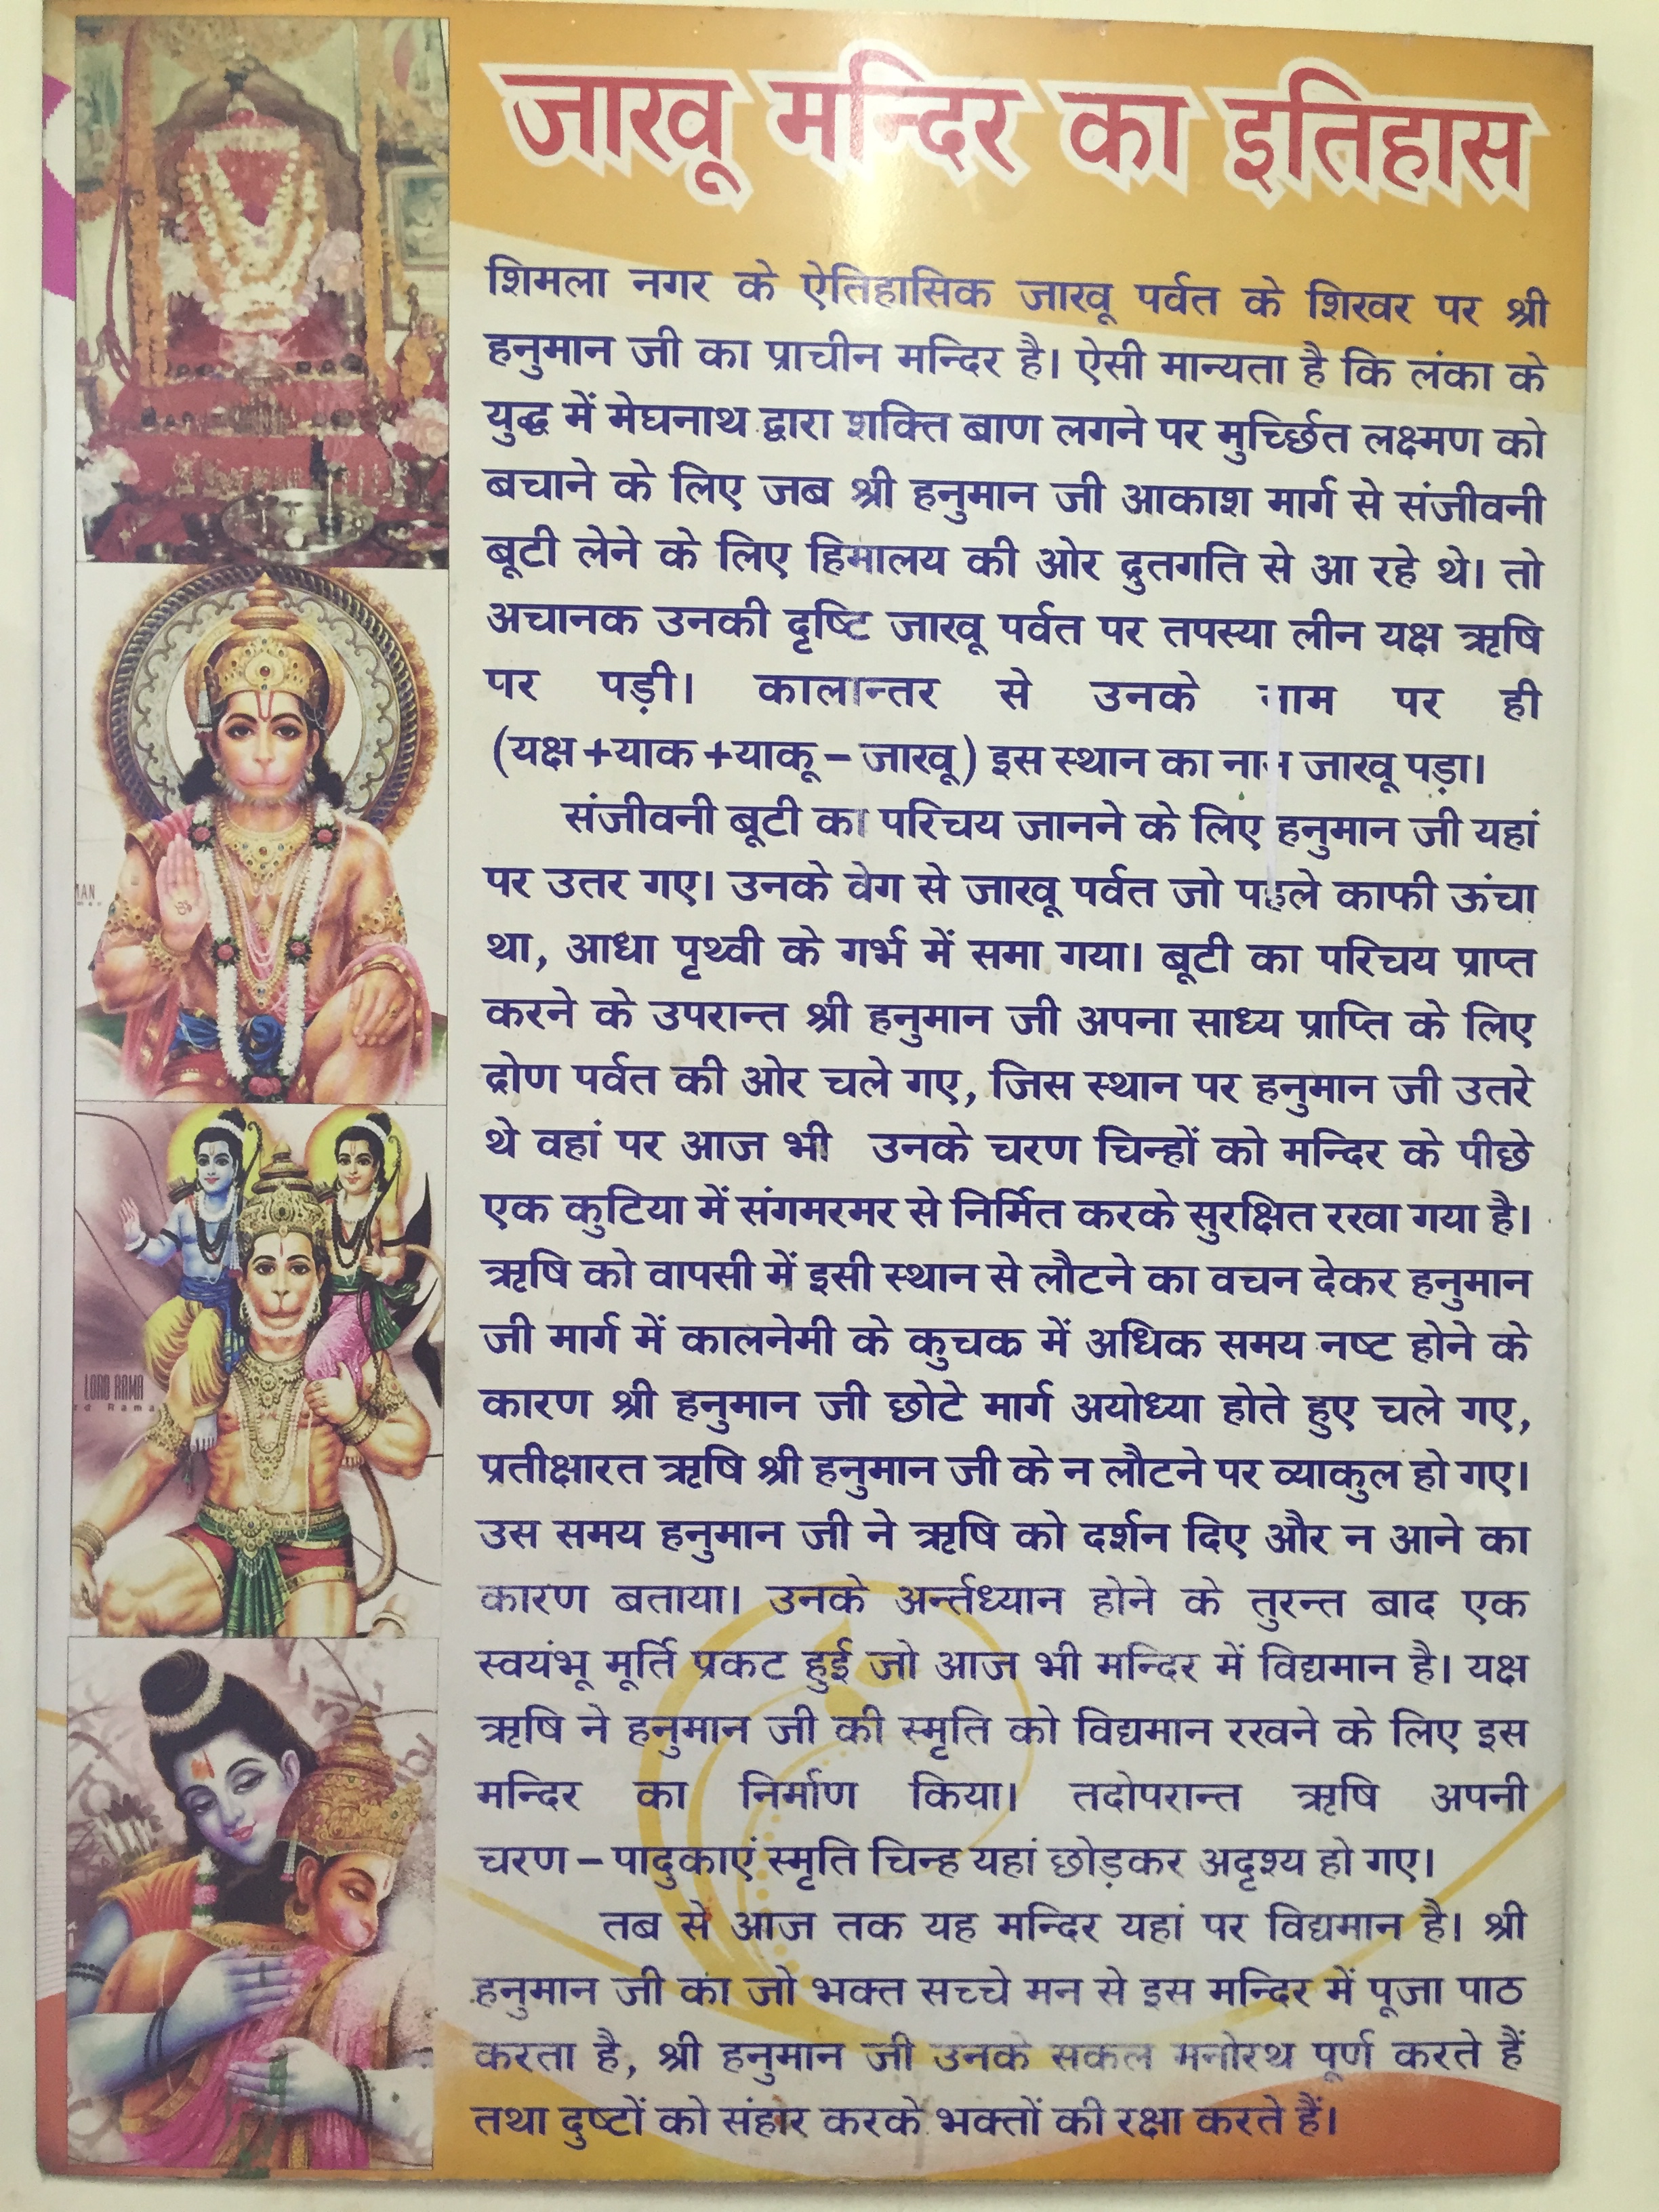 जाखू मन्दिर का इतिहास
शिमला नगर के ऐतिहासिक जाखू पर्वत के शिखर पर श्री
हनुमान जी का प्राचीन मन्दिर है। ऐसी मान्यता है कि लंका के
युद्ध में मेघनाथ द्वारा शक्ति बाण लगने पर मुर्च्छित लक्ष्मण को
बचाने के लिए जब श्री हनुमान जी आकाश मार्ग से संजीवनी
बूटी लेने के लिए हिमालय की ओर द्रुतगति से आ रहे थे। तो
अचानक उनकी दृष्टि जाखू पर्वत पर तपस्या लीन यक्ष ऋषि
पर पड़ी। कालान्तर से उनके नाम पर ही
(यक्ष+याक+याकू–जाखू) इस स्थान का नाम जाखू पड़ा।
संजीवनी बूटी का परिचय जानने के लिए हनुमान जी यहां
पर उतर गए। उनके वेग से जाखू पर्वत जो पहले काफी ऊंचा
था, आधा पृथ्वी के गर्भ में समा गया। बूटी का परिचय प्राप्त
करने के उपरान्त श्री हनुमान जी अपना साध्य प्राप्ति के लिए
द्रोण पर्वत की ओर चले गए, जिस स्थान पर हनुमान जी उतरे
थे वहां पर आज भी उनके चरण चिन्हों को मन्दिर के पीछे
एक कुटिया में संगमरमर से निर्मित करके सुरक्षित रखा गया है।
ऋषि को वापसी में इसी स्थान से लौटने का वचन देकर हनुमान
जी मार्ग में कालनेमी के कुचक में अधिक समय नष्ट होने के
कारण श्री हनुमान जी छोटे मार्ग अयोध्या होते हुए चले गए,
प्रतीक्षारत ऋषि श्री हनुमान जी के न लौटने पर व्याकुल हो गए।
उस समय हनुमान जी ने ऋषि को दर्शन दिए और न आने का
कारण बताया। उनके अर्न्तध्यान होने के तुरन्त बाद एक
स्वयंभू मूर्ति प्रकट हुई जो आज भी मन्दिर में विद्यमान है। यक्ष
ऋषि ने हनुमान जी की स्मृति को विद्यमान रखने के लिए इस
मन्दिर का निर्माण किया। तदोपरान्त ऋषि अपनी
चरण–पादुकाएं स्मृति चिन्ह यहां छोड़कर अदृश्य हो गए।
तब से आज तक यह मन्दिर यहां पर विद्यमान है। श्री
हनुमान जी का जो भक्त सच्चे मन से इस मन्दिर में पूजा पाठ
करता है, श्री हनुमान जी उनके सकल मनोरथ पूर्ण करते हैं
तथा दुष्टों को संहार करके भक्तों की रक्षा करते हैं।
MAN
LORD RAMA
rd Rama